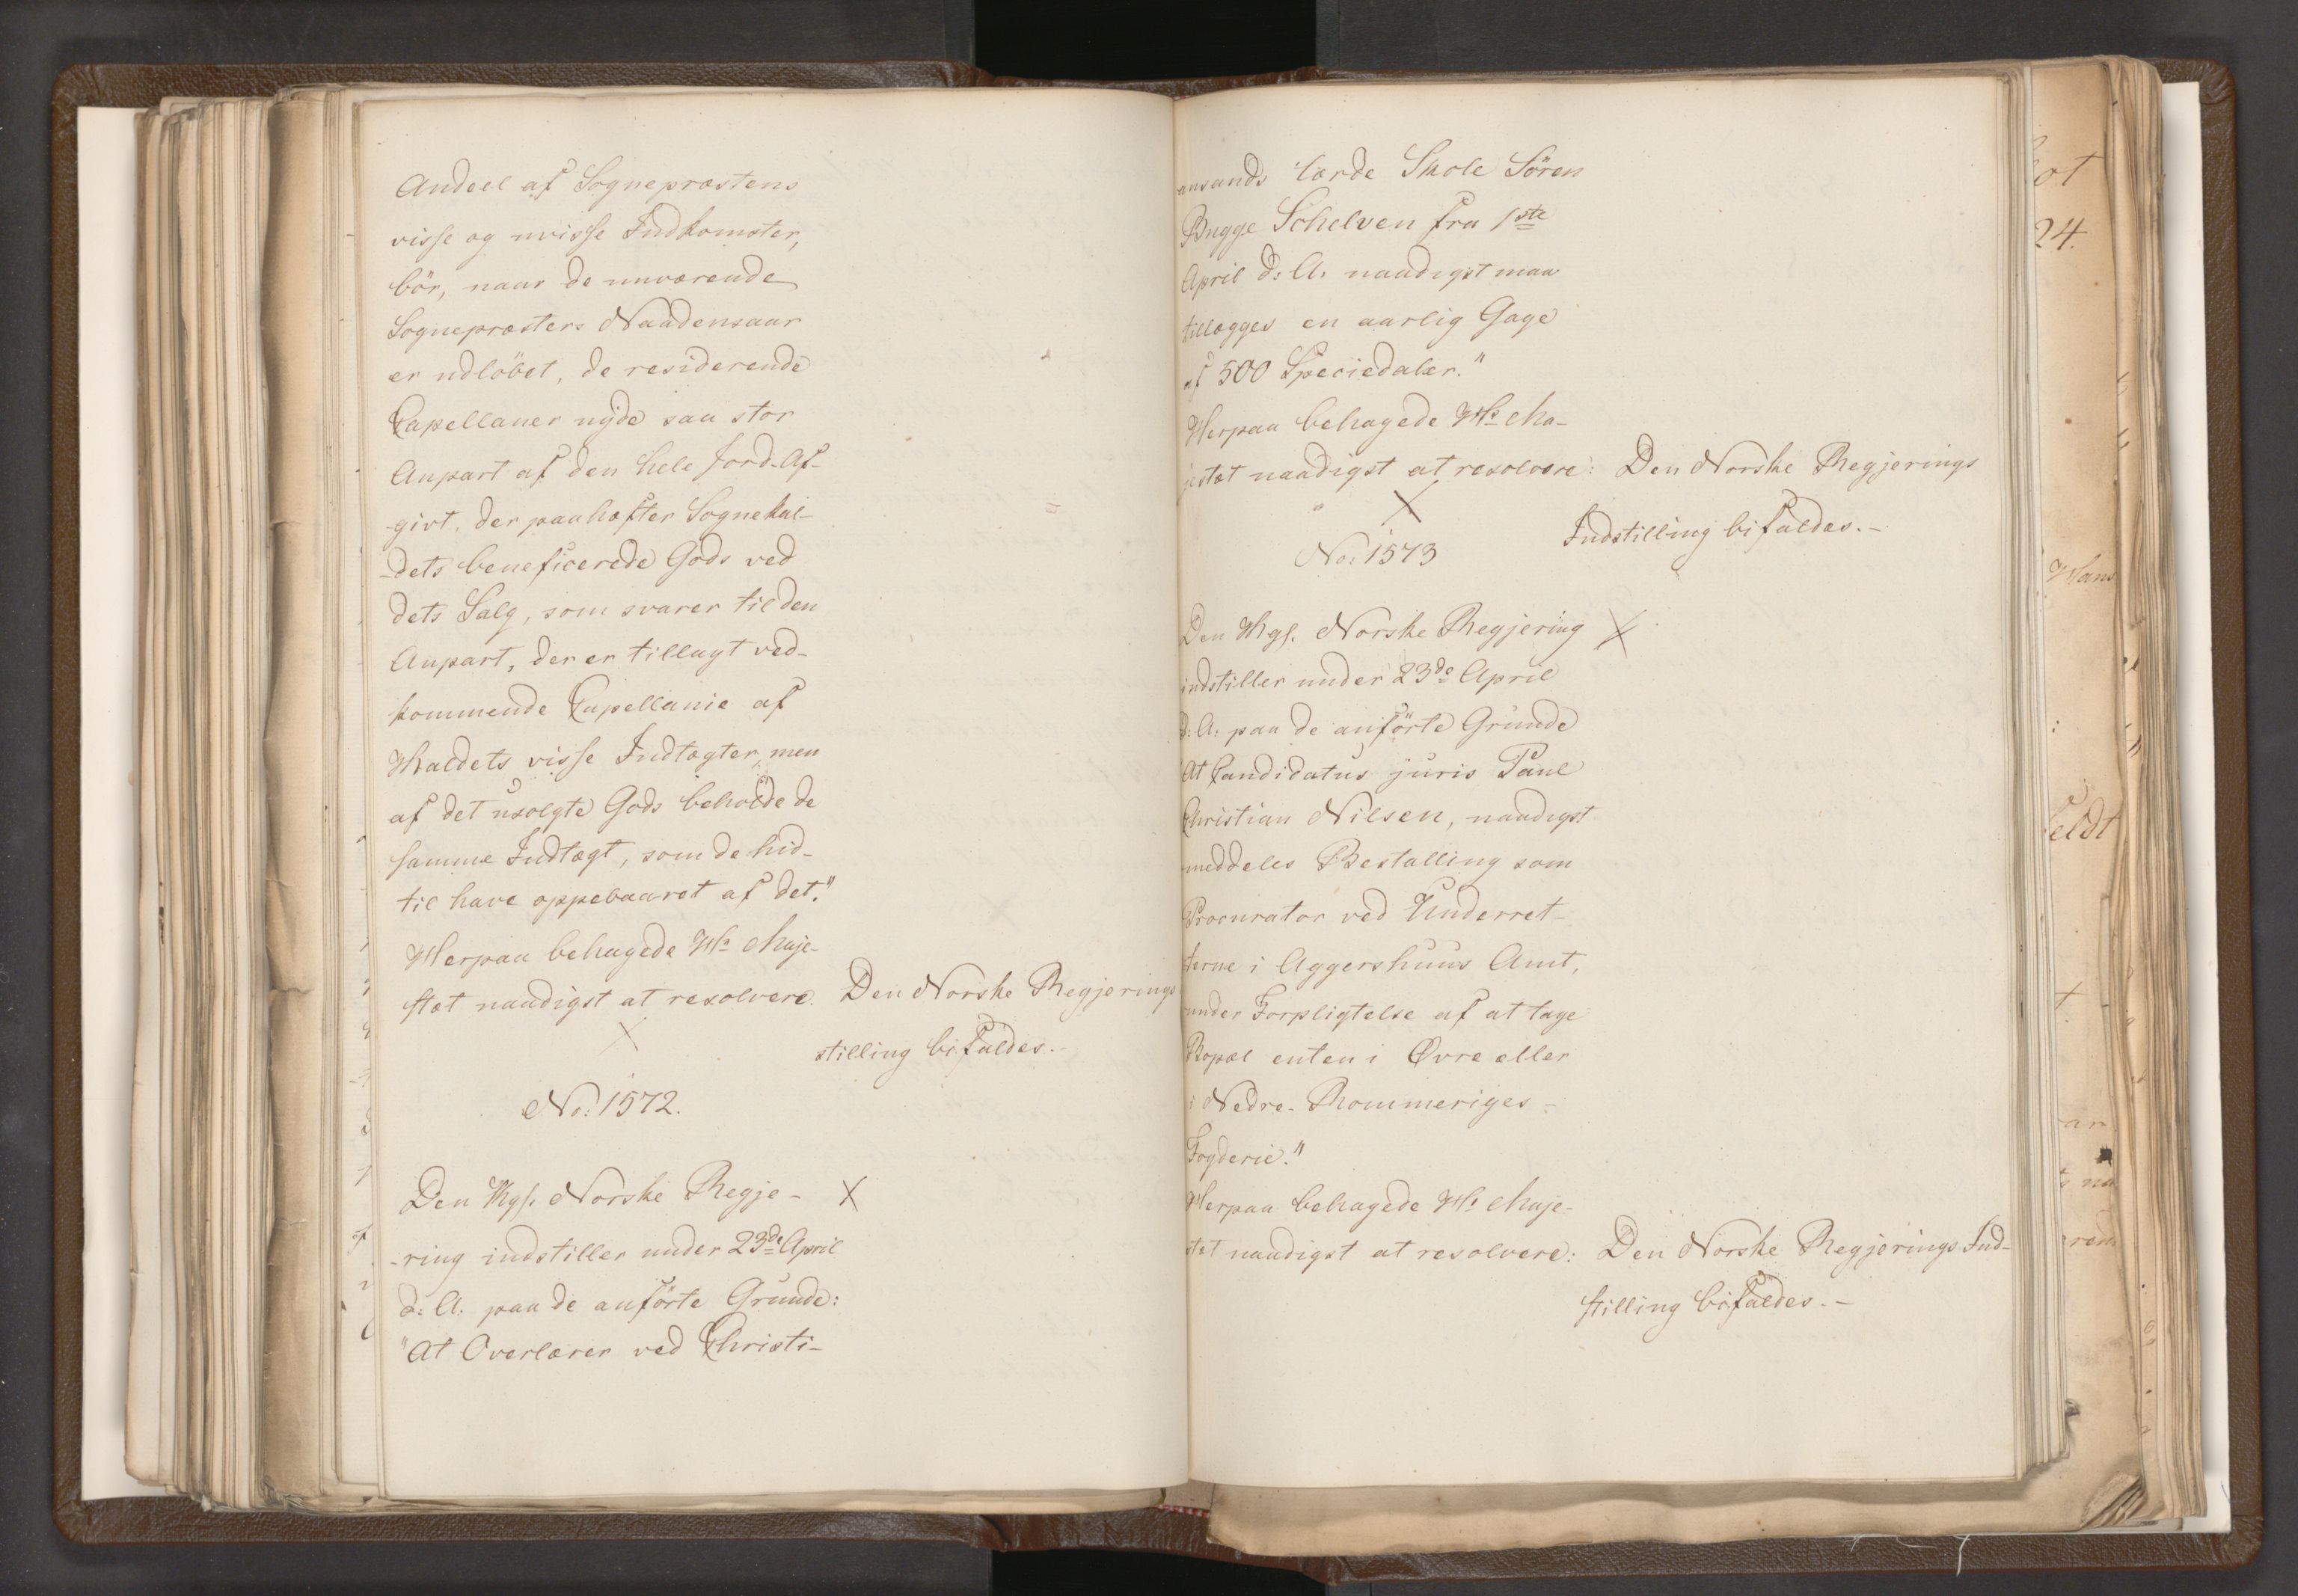 Andeel af Sognepræstens
visse og uvisse Indkomster,
bör, naar de nuværende
Sognepræsters Naadensaar
er udlöbet, de residerende
Capellaner nyde saa stor
Anpart af den hele Jord-Af-
-givt, der paahæfter Sognekal-
-dets beneficerede Gods ved
dets Salg, som svarer til den
Anpart, der er tillagt ved-
kommende Capellanie af
Kaldets visse Indtægter, men
af det usolgte Gods beholde de
samme Indtægt, som de hid-
til have oppebaaret af det."
Herpaa behagede Hs Maje-
stæt naadigst at resolvere. Den Norske Regjerings
stilling bifaldes.-
No: 1572.
Den Kgl. Norske Regje-
-ring indstiller under 23de April
d: A: paa de anförte Grunde:
"At Overlærer ved Christi-
ansands lærde Skole Sören
Bugge Schelven fra 1ste
April d: A: naadigst maa
tillægges en aarlig Gage
af 500 Speciedaler."
Herpaa behagede Hs Ma-
jestæt naadigst at resolvere: Den Norske Regjerings
Indstilling bifaldes.-
No: 1573
Den Kgl. Norske Regjering
indstiller under 23de April
d: A: paa de anförte Grunde
At Candidatus juris Paul
Christian Nilsen, naadigst
meddeles Bestalling som
Procurator ved Underret-
terne i Aggershuus Amt,
under Forpligtelse af at tage
Bopæl enten i Øvre eller
i Nedre-Rommeriges-
Fogderie."
Herpaa behagede Hs Maje-
stæt naadigst at resolvere: Den Norske Regjerings Ind-
stilling bifaldes.-
24.